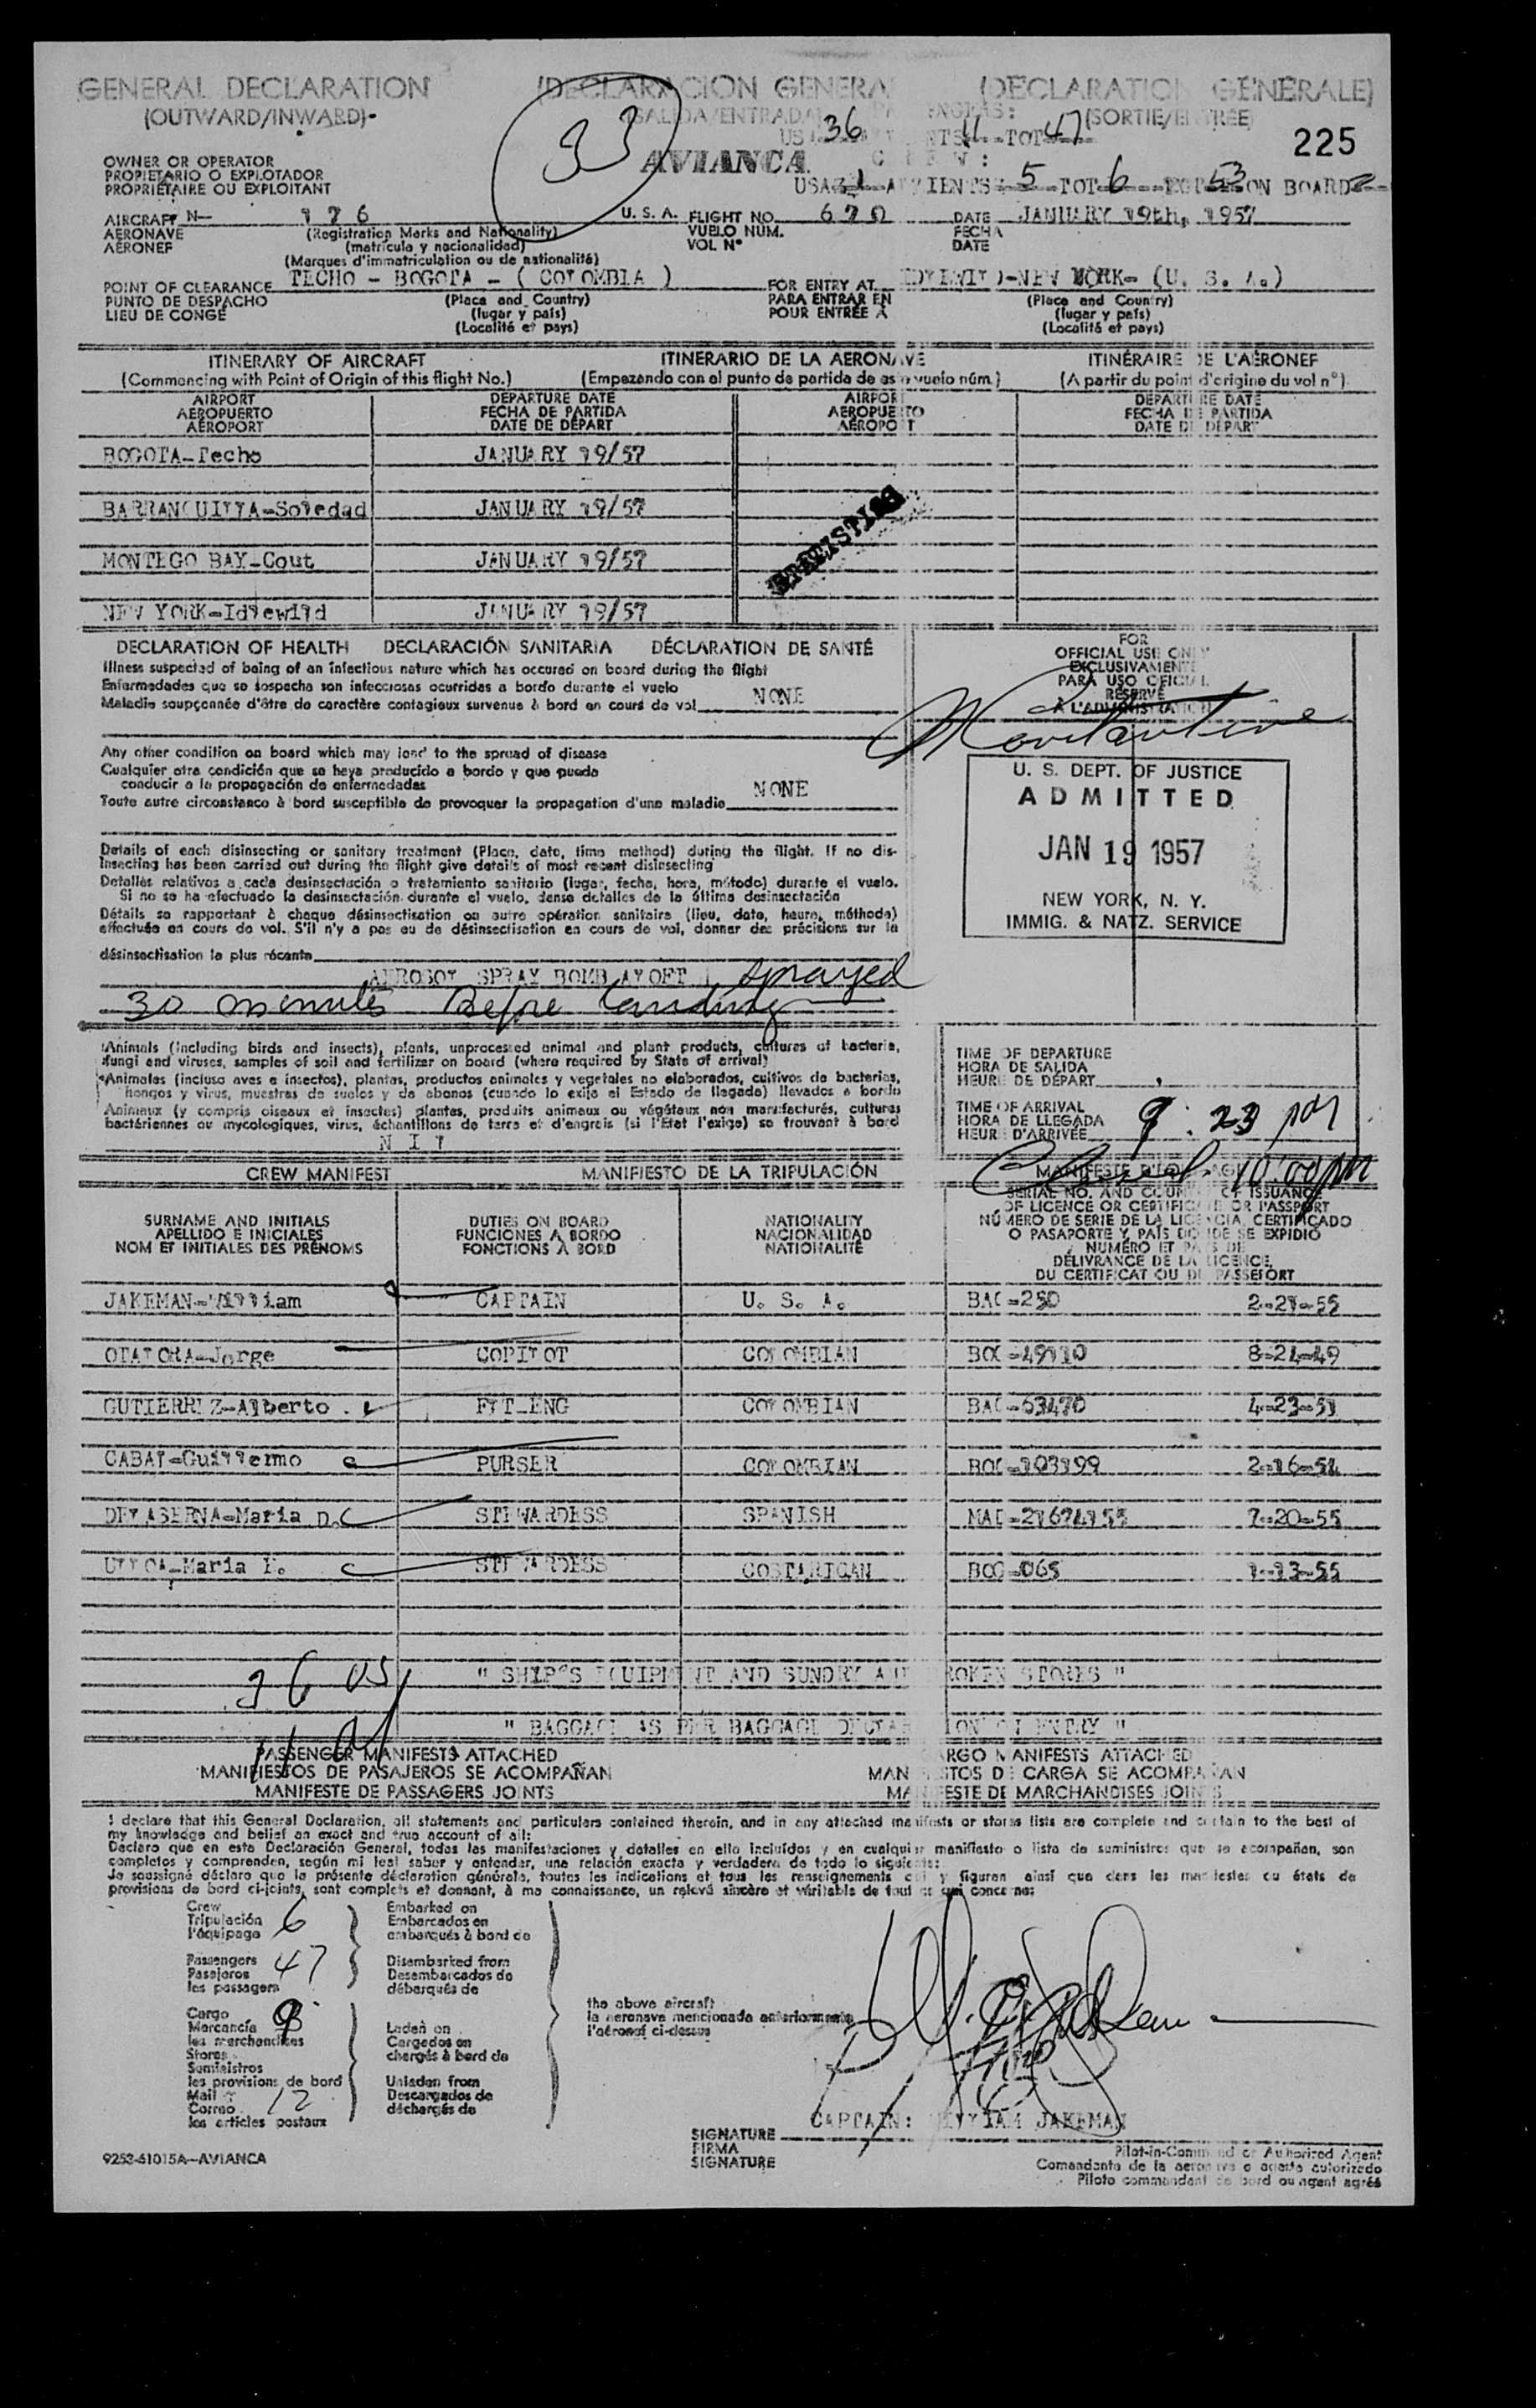 GENERAL DECLARATION (DECLARACION GENERA (DÉCLARATIO GÉNÉRALE)
(OUTWARD/INWARD) (SALIDA/ENTRADA) (SORTIE/ENTRÉE)
33
36 11 TOT 47
225
OWNER OR OPERATOR
PROPIETARIO O EXPLOTADOR
PROPRIÉTAIRE OU EXPLOITANT
AVIANCA
USA 1 5 TOT 6 53 ON BOARD
AIRCRAFT N— U. S. A. FLIGHT NO. DATE JANUARY 19th, 1957
AÉRONAVE (Registration Marks and Nationality) VUELO NÚM. FECHA
AÉRONEF (matrícula y nacionalidad) VOL Nº DATE
(Marques d'immatriculation ou de nationalité)
POINT OF CLEARANCE TECHO - BOGOTA - ( COLOMBIA ) FOR ENTRY AT IDLEWILD-NEW YORK- (U. S. A.)
PUNTO DE DESPACHO (Place and Country) PARA ENTRAR EN (Place and Country)
LIEU DE CONGÉ (lugar y país) POUR ENTRÉE À (lugar y país)
(Localité et pays) (Localité et pays)
ITINERARY OF AIRCRAFT ITINERARIO DE LA AERONAVE ITINÉRAIRE DE L'AÉRONEF
(Commencing with Point of Origin of this flight No.) (Empezando con el punto de partida de este vuelo núm.) (A partir du point d'origine du vol nº)
AIRPORT DEPARTURE DATE AIRPORT DEPARTURE DATE
AEROPUERTO FECHA DE PARTIDA AEROPUERTO FECHA DE PARTIDA
AÉROPORT DATE DE DÉPART AÉROPORT DATE DE DÉPART
BOGOTA-Techo JANUARY 19/57
BARRANQUILLA-Soledad JANUARY 19/57
MONTEGO BAY-Cout JANUARY 19/57
NEW YORK-Idlewild JANUARY 19/57
STATISTICS
DECLARATION OF HEALTH DECLARACIÓN SANITARIA DÉCLARATION DE SANTÉ
Illness suspected of being of an infectious nature which has occured on board during the flight
Enfermedades que se sospecha son infecciosas ocurridas a bordo durante el vuelo
Maladie soupçonnée d'être de caractère contagieux survenue à bord en cours de vol NONE
FOR
OFFICIAL USE ONLY
EXCLUSIVAMENTE
PARA USO OFICIAL
RÉSERVÉ
À L'ADMINISTRATION
Any other condition on board which may lead to the spread of disease
Cualquier otra condición que se haya producido a bordo y que pueda
conducir a la propagación de enfermedades
Toute autre circonstance à bord susceptible de provoquer la propagation d'une maladie NONE
U. S. DEPT. OF JUSTICE
ADMITTED
JAN 19 1957
NEW YORK, N. Y.
IMMIG. & NATZ. SERVICE
Details of each disinsecting or sanitary treatment (Place, date, time method) during the flight. If no dis-
insecting has been carried out during the flight give details of most recent disinsecting
Detalles relativos a cada desinsectación o tratamiento sanitario (lugar, fecha, hora, método) durante el vuelo.
Si no se ha efectuado la desinsectación durante el vuelo, dense detalles de la última desinsectación
Détails se rapportant à chaque désinsectisation ou autre opération sanitaire (lieu, date, heure, méthode)
effectuée en cours de vol. S'il n'y a pas eu de désinsectisation en cours de vol, donner des précisions sur la
désinsectisation la plus récente
AEROSOL SPRAY BOMB sprayed
30 minutes before landing
Animals (including birds and insects), plants, unprocessed animal and plant products, cultures of bacteria,
fungi and viruses, samples of soil and fertilizer on board (where required by State of arrival)
Animales (incluso aves e insectos), plantas, productos animales y vegetales no elaborados, cultivos de bacterias,
hongos y virus, muestras de suelos y de abonos (cuando lo exija el Estado de llegada) llevados a bordo
Animaux (y compris oiseaux et insectes) plantes, produits animaux ou végétaux non manufacturés, cultures
bactériennes ou mycologiques, virus, échantillons de terre et d'engrais (si l'État l'exige) se trouvant à bord
NIL
TIME OF DEPARTURE
HORA DE SALIDA
HEURE DE DÉPART
TIME OF ARRIVAL
HORA DE LLEGADA
HEURE D'ARRIVÉE 9:23 PM
10:00 PM
CREW MANIFEST MANIFIESTO DE LA TRIPULACIÓN
SURNAME AND INITIALS DUTIES ON BOARD NATIONALITY SERIAL NO. AND COUNTRY OF ISSUANCE
APELLIDO E INICIALES FUNCIONES A BORDO NACIONALIDAD OF LICENCE OR CERTIFICATE OR PASSPORT
NOM ET INITIALES DES PRÉNOMS FONCTIONS À BORD NATIONALITÉ NÚMERO DE SERIE DE LA LICENCIA, CERTIFICADO
O PASAPORTE Y PAÍS DONDE SE EXPIDIÓ
NUMÉRO ET PAYS DE
DÉLIVRANCE DE LA LICENCE,
DU CERTIFICAT OU DU PASSEPORT
JAKEMAN-William CAPTAIN U. S. A. BAQ-250 2-21-55
OTALORA-Jorge COPILOT COLOMBIAN BOG-49110 8-24-49
GUTIERREZ-Alberto FLT-ENG COLOMBIAN BAQ-63470 4-23-51
CABAL-Guillermo PURSER COLOMBIAN BOG-103199 2-16-54
DELASERNA-Maria D. STEWARDESS SPANISH 7-20-55
ULLOA-Maria E. STEWARDESS COSTARICAN BOG-065 1-13-55
36 US
11 A
" SHIP'S EQUIPMENT AND SUNDRY AND BROKEN STORES "
" BAGGAGE AS PER BAGGAGE DECLARATION ENTRY "
PASSENGER MANIFESTS ATTACHED CARGO MANIFESTS ATTACHED
MANIFIESTOS DE PASAJEROS SE ACOMPAÑAN MANIFIESTOS DE CARGA SE ACOMPAÑAN
MANIFESTE DE PASSAGERS JOINTS MANIFESTE DE MARCHANDISES JOINTS
I declare that this General Declaration, all statements and particulars contained therein, and in any attached manifests or stores lists are complete and certain to the best of
my knowledge and belief an exact and true account of all:
Declaro que en esta Declaración General, todas las manifestaciones y detalles en ella incluídos y en cualquier manifiesto o lista de suministros que se acompañan, son
completos y comprenden, según mi leal saber y entender, una relación exacta y verdadera de todo lo siguiente:
Je soussigné déclare que la présente déclaration générale, toutes les indications et tous les renseignements qui y figuren ainsi que dans les manifestes ou états de
provisions de bord ci-joints, sont complets et donnent, à ma connaissance, un relevé sincère et véritable de tout ce qui concerne:
Crew Embarked on
Tripulación 6 Embarcados en
l'équipage embarqués à bord de
Passengers Disembarked from
Pasajeros 47 Desembarcados de
les passagers débarqués de
Cargo
Mercancía
les marchandises Laden on
Stores Cargados en
Suministros chargés à bord de
les provisions de bord Unladen from
Mail Descargados de
Correo 12 déchargés de
les articles postaux
the above aircraft
la aeronave mencionada anteriormente
l'aéronef ci-dessus
CAPTAIN: WILLIAM JAKEMAN
SIGNATURE
FIRMA
SIGNATURE
Pilot-in-Command or Authorized Agent
Comandante de la aeronave o agente autorizado
Piloto commandant de bord ou agent agréé
9253-61015A—AVIANCA